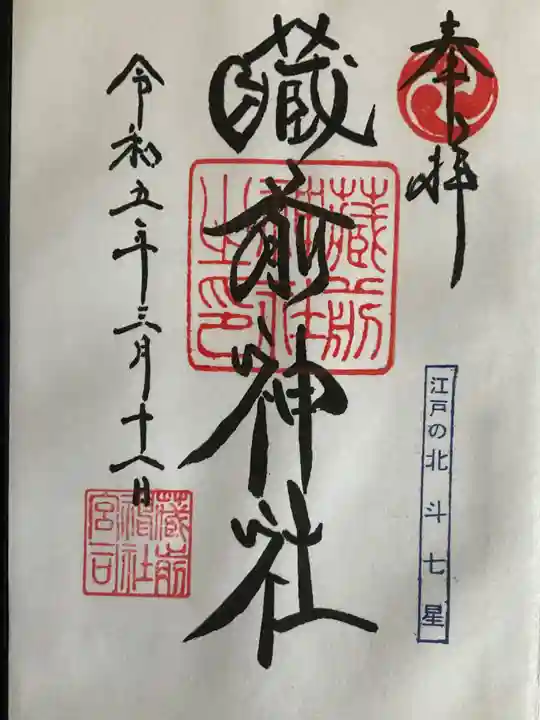 奉拝
江戸の北斗七星
藏前神社
藏前神社之印
令和五年三月十八日
藏前神社宮司